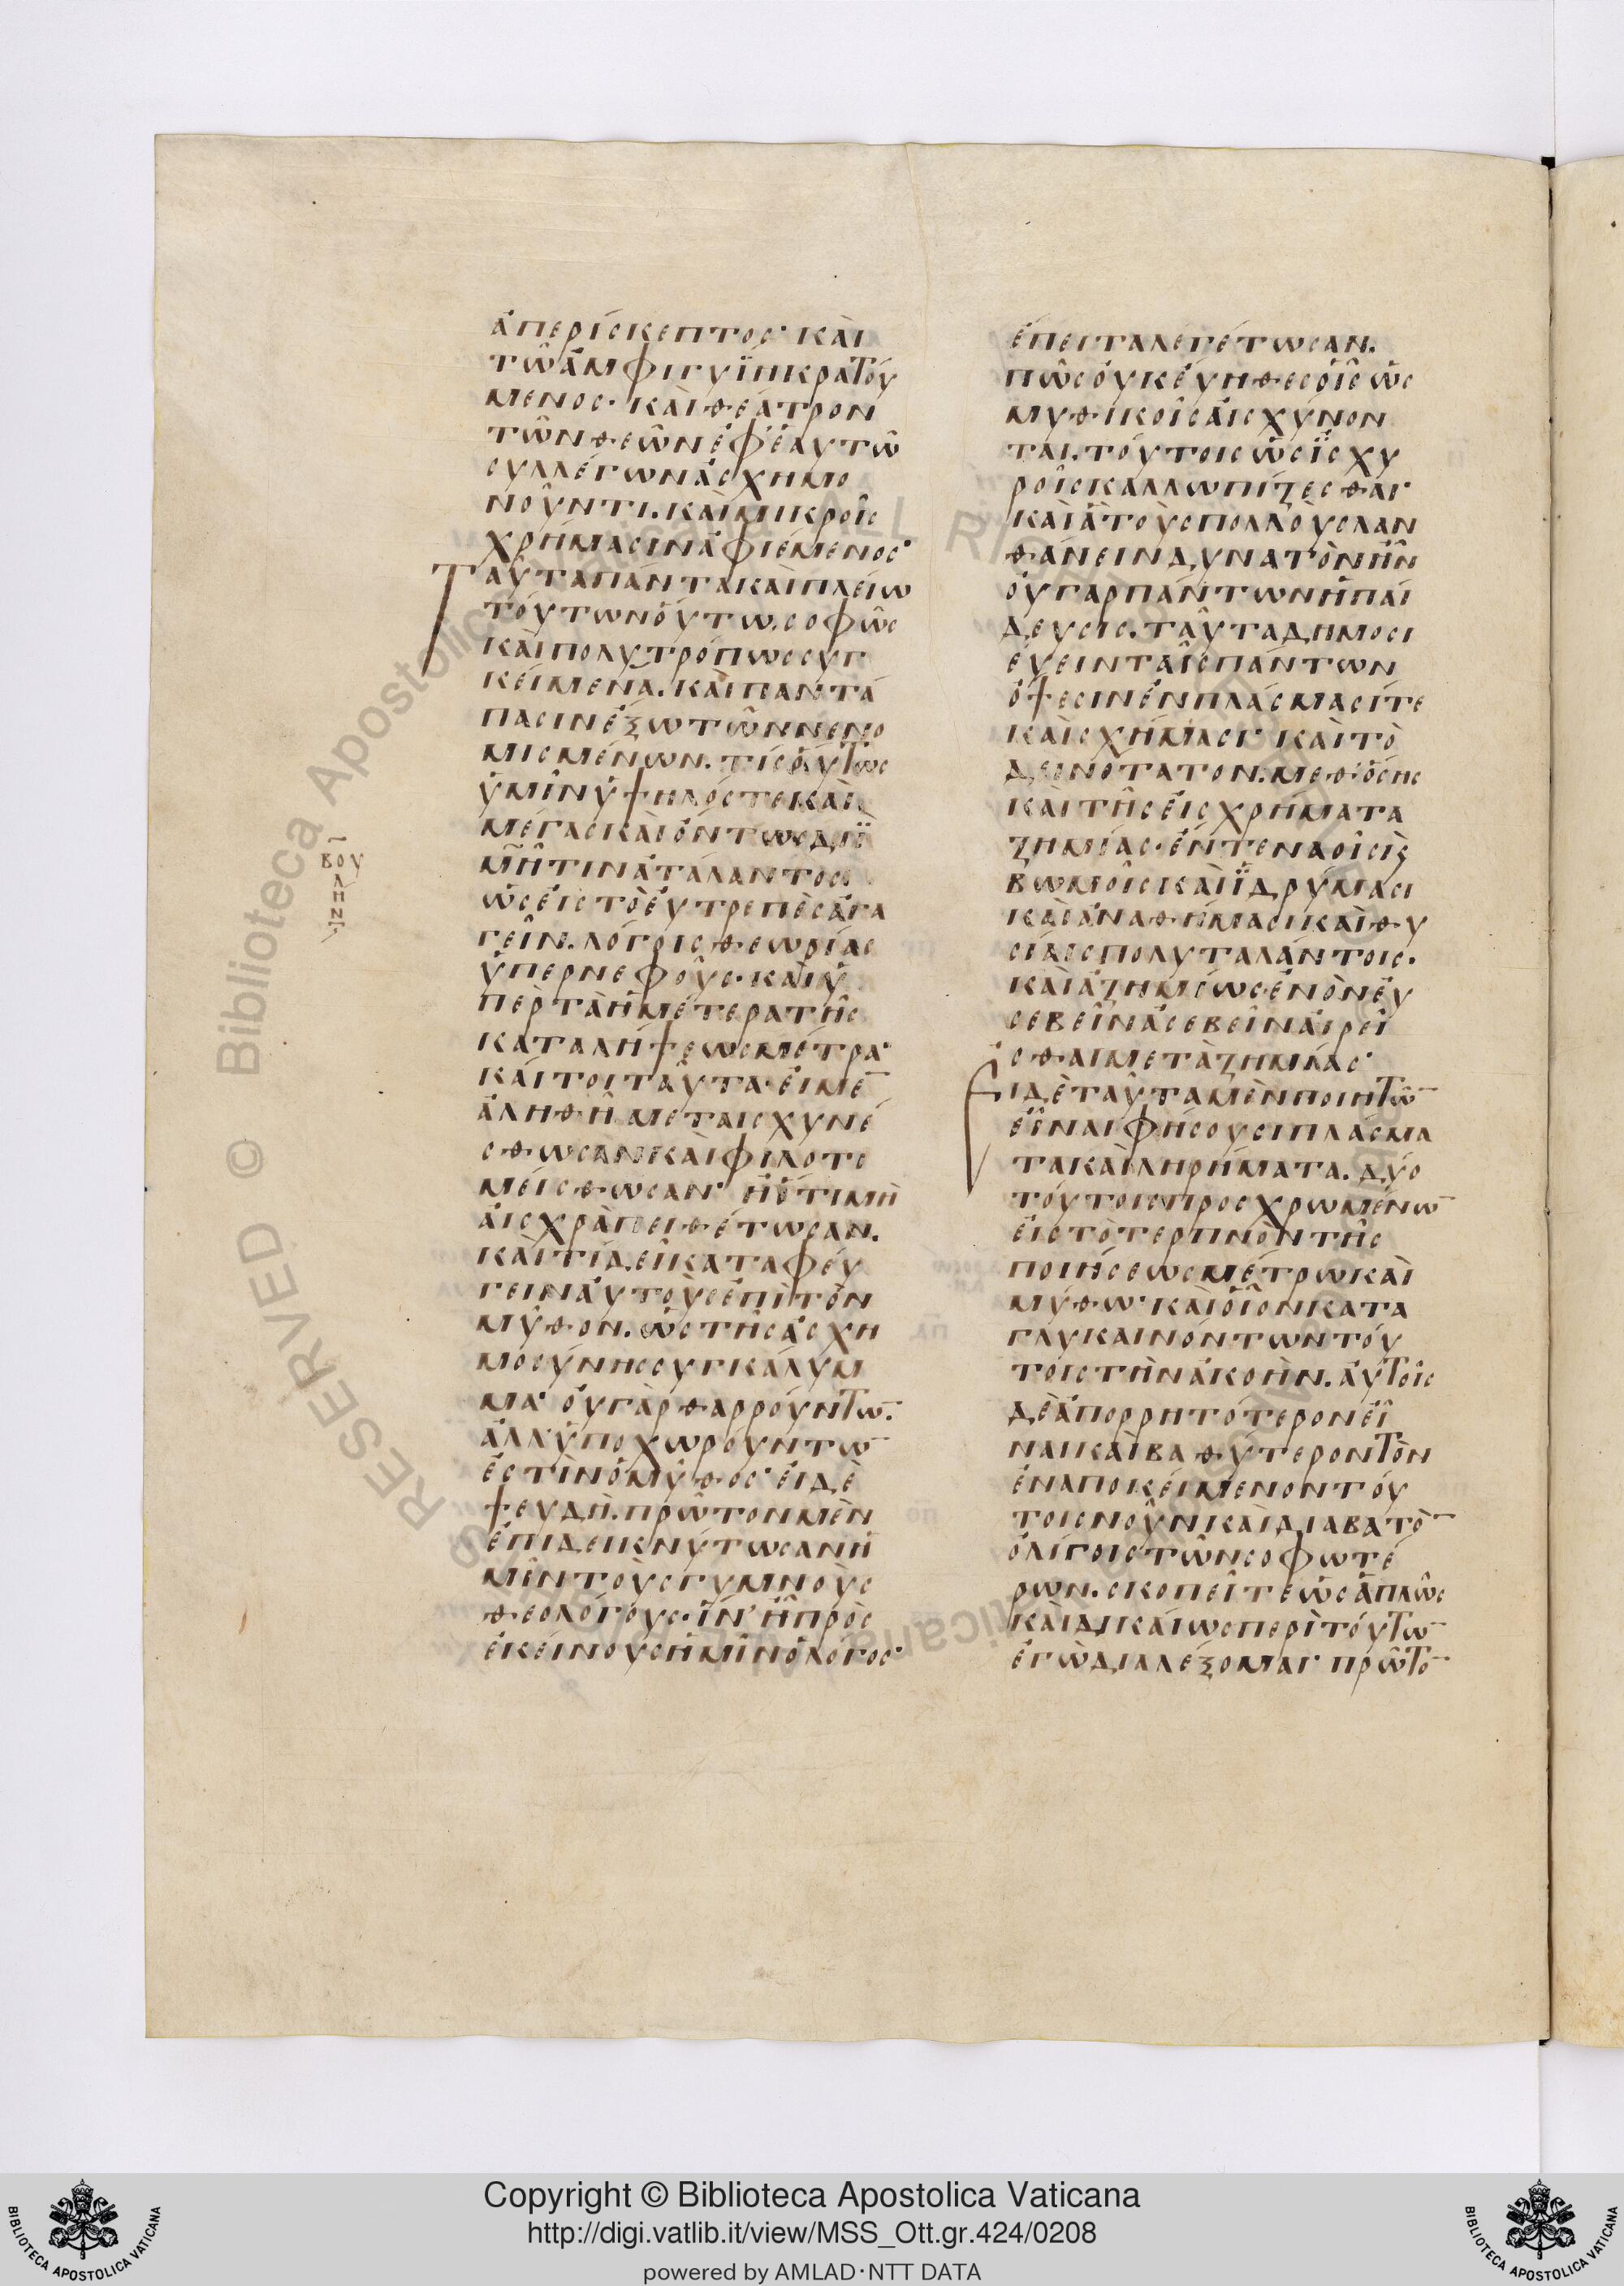 ἀπερίσκεπτος· καὶ
τῶ ἀμφιγυΐηι κρατού
μενος· καὶ θέατρον
τῶν θεῶν ἐφ' ἑαυτῶ
συλλέγων ἀσχημο
νοῦντι. καὶ μικροῖς
χρήμασιν ἀφιέμενος·
Ταῦτα πάντα καὶ πλείω
τούτων οὕτω, σοφῶς
καὶ πολυτρόπως συγ
κείμενα. καὶ παντά
πασιν ἔξω τῶν νενο
μισμένων. τίς οὕτως
ὑμῖν ὑψηλός τε καὶ
μέγας καὶ ὄντως διῒ
μῆτιν ἀτάλαντος
ὡς εἰς τὸ εὐτρεπὲς ἀγα
γεῖν. λόγοις θεωρίας
ὑπερνεφοῦς· καὶ ὑ
πὲρ τὰ ἡμέτερα τῆς
καταλήψεως μέτρα·
καίτοι ταῦτα· εἰ μὲ̅
ἀληθῆ μεταισχυνέ
σθωσαν καὶ φιλοτι
μείσθωσαν· ἢ ὅτι μὴ
αἰσχρὰ πειθέτωσαν.
καὶ τί δεῖ καταφεύ
γειν αὐτοὺς ἐπὶ τὸν
μῦθον. ὡς τῆς ἀσχη
μοσύνης συγκάλυμ
μα· οὐ γὰρ θαρρούντω̅.
ἀλλ' ὑποχωρούντω̅
ἐστὶν ὁ μῦθος· εἰ δὲ
ψευδῆ. πρῶτον μὲν
ἐπιδεικνύτωσαν ἡ
μῖν τοὺς γυμνοὺς
θεολόγους· ἵν' ἦ πρὸς
ἐκείνους ἡμῖν ὁ λόγος·
βου
λη
ν
ἔπειτα λεγέτωσαν.
πῶς οὐκ εὔηθες οἷς ὡς
μυθικοῖς αἰσχύνον
ται. τούτοις ὡς ἰσχυ
ροῖς καλλωπίζεσθαι·
καὶ ἃ τοὺς πολλοὺς λαν
θάνειν δυνατὸν ἦν
οὐ γὰρ πάντων ἡ παί
δευσις. ταῦτα δημοσι
εύειν ταῖς πάντων
ὄψεσιν ἐν πλάσμασί τε
καὶ σχήμασι· καὶ τὸ
δεινότατον. μεθ' ὅσης
καὶ τῆς εἰς χρήματα
ζημίας· ἔν τε ναοῖς ϗ
βωμοῖς καὶ ἱδρύμασι
καὶ ἀναθήμασι καὶ θυ
σίαις πολυταλάντοις.
καὶ ἀζημίως· ἐνὸν εὐ
σεβεῖν ἀσεβεῖν αἱρεῖ
σθαι μετὰ ζημίας·
Εἰ δὲ ταῦτα μὲν ποιητῶ̅
εἶναι φήσουσι πλάσμα
τα καὶ ληρήματα. δύο
τούτοις προσχρωμένω̅
εἰς τὸ τερπνὸν τῆς
ποιήσεως μέτρω καὶ
μύθω· καὶ οἷον κατα
γλυκαινόντων τού
τοις τὴν ἀκοήν. αὐτοῖς
δὲ ἀπορρητότερον εἶ
ναι καὶ βαθύτερον τὸν
ἐναποκείμενον τού
τοις νοῦν καὶ διαβατὸ̅
ὀλίγοις τῶν σοφωτέ
ρων. σκοπεῖτε ὡς ἁπλῶς
καὶ δικαίως περὶ τούτω̅
ἐγὼ διαλέξομαι· πρῶτο̅
Copyright © Biblioteca Apostolica Vaticana
http://digi.vatlib.it/view/MSS_Ott.gr.424/0208
powered by AMLAD·NTT DATA
BIBLIOTECA APOSTOLICA VATICANA
BIBLIOTECA APOSTOLICA VATICANA